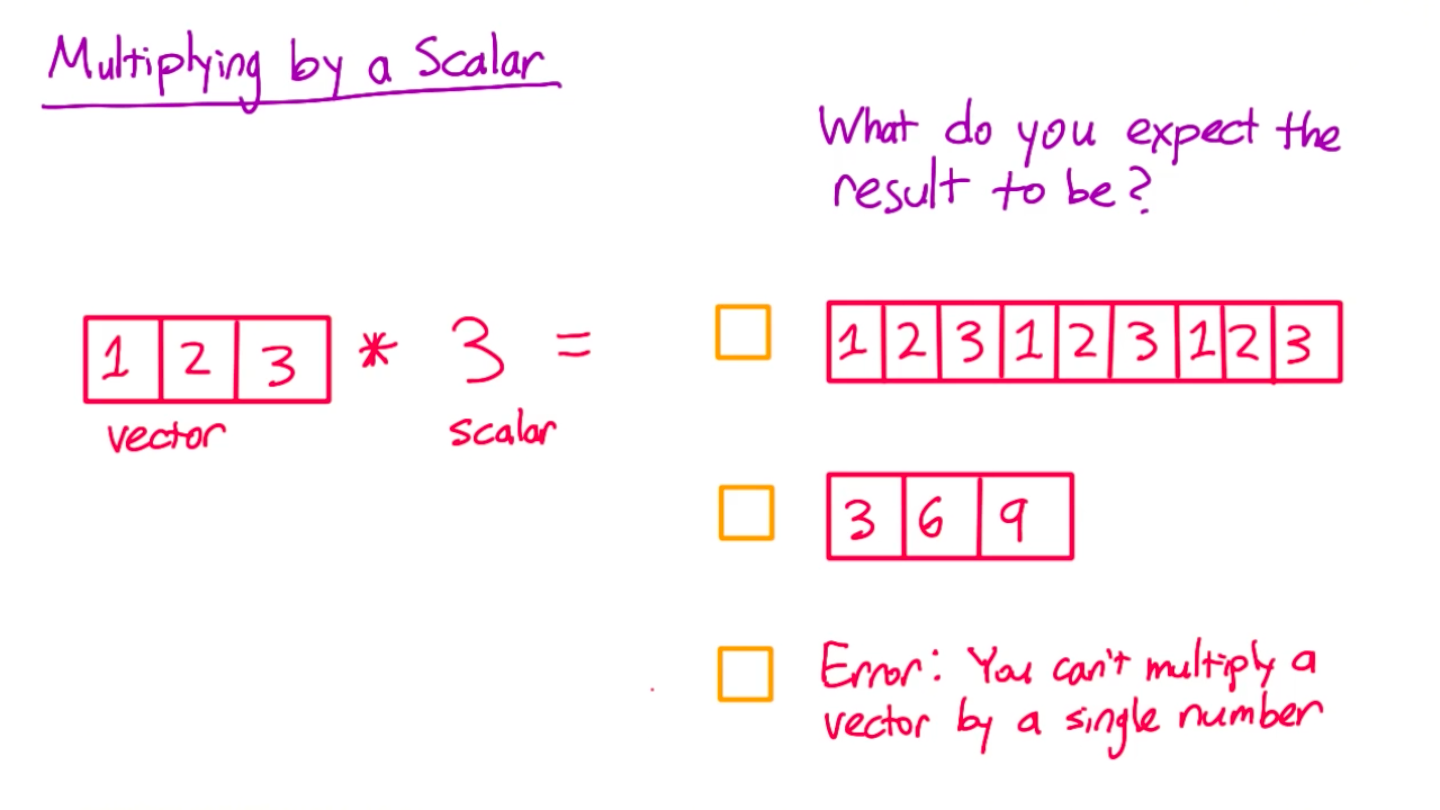 Multiplying by a Scalar
What do you expect the
result to be?
1 2 3 * 3 =
vector scalar
1 2 3 1 2 3 1 2 3
3 6 9
Error: You can't multiply a
vector by a single number